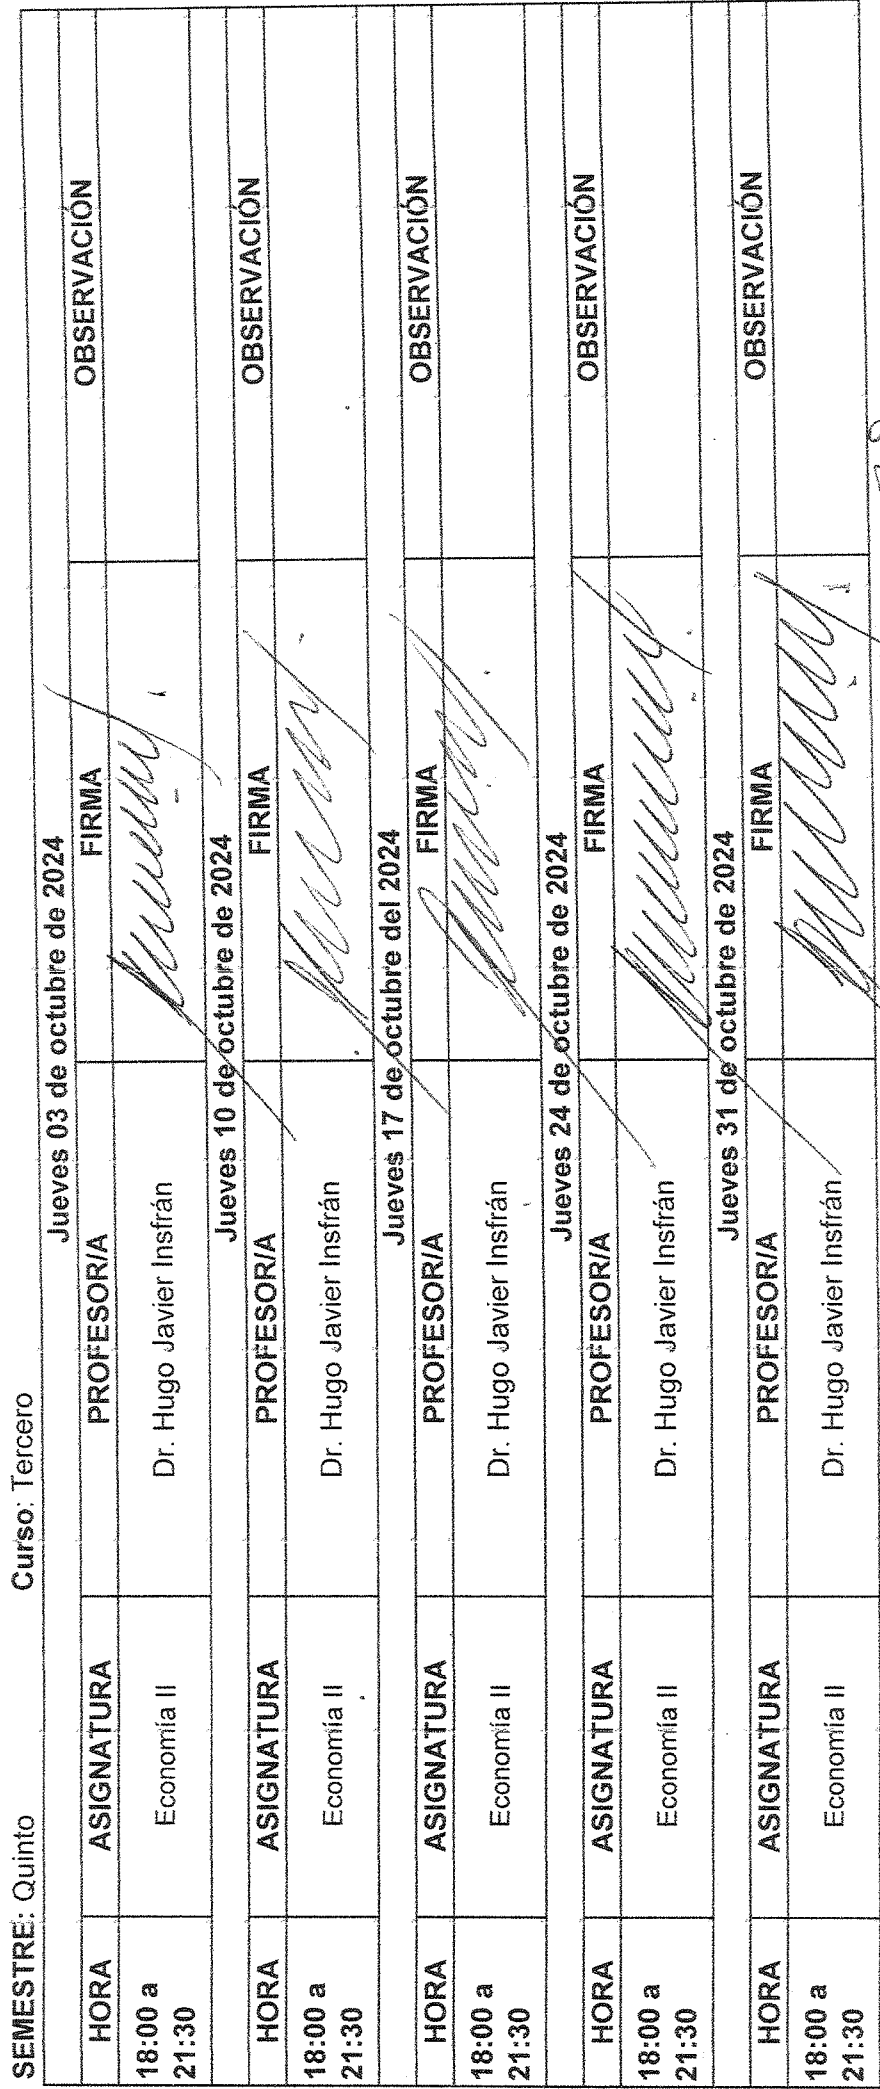 SEMESTRE: Quinto Curso: Tercero
Jueves 03 de octubre de 2024
HORA ASIGNATURA PROFESOR/A FIRMA OBSERVACIÓN
18:00 a
21:30
Economía II Dr. Hugo Javier Insfrán
Jueves 10 de octubre de 2024
HORA ASIGNATURA PROFESOR/A FIRMA OBSERVACIÓN
18:00 a
21:30
Economía II Dr. Hugo Javier Insfrán
Jueves 17 de octubre del 2024
HORA ASIGNATURA PROFESOR/A FIRMA OBSERVACIÓN
18:00 a
21:30
Economía II Dr. Hugo Javier Insfrán
Jueves 24 de octubre de 2024
HORA ASIGNATURA PROFESOR/A FIRMA OBSERVACIÓN
18:00 a
21:30
Economía II Dr. Hugo Javier Insfrán
Jueves 31 de octubre de 2024
HORA ASIGNATURA PROFESOR/A FIRMA OBSERVACIÓN
18:00 a
21:30
Economía II Dr. Hugo Javier Insfrán